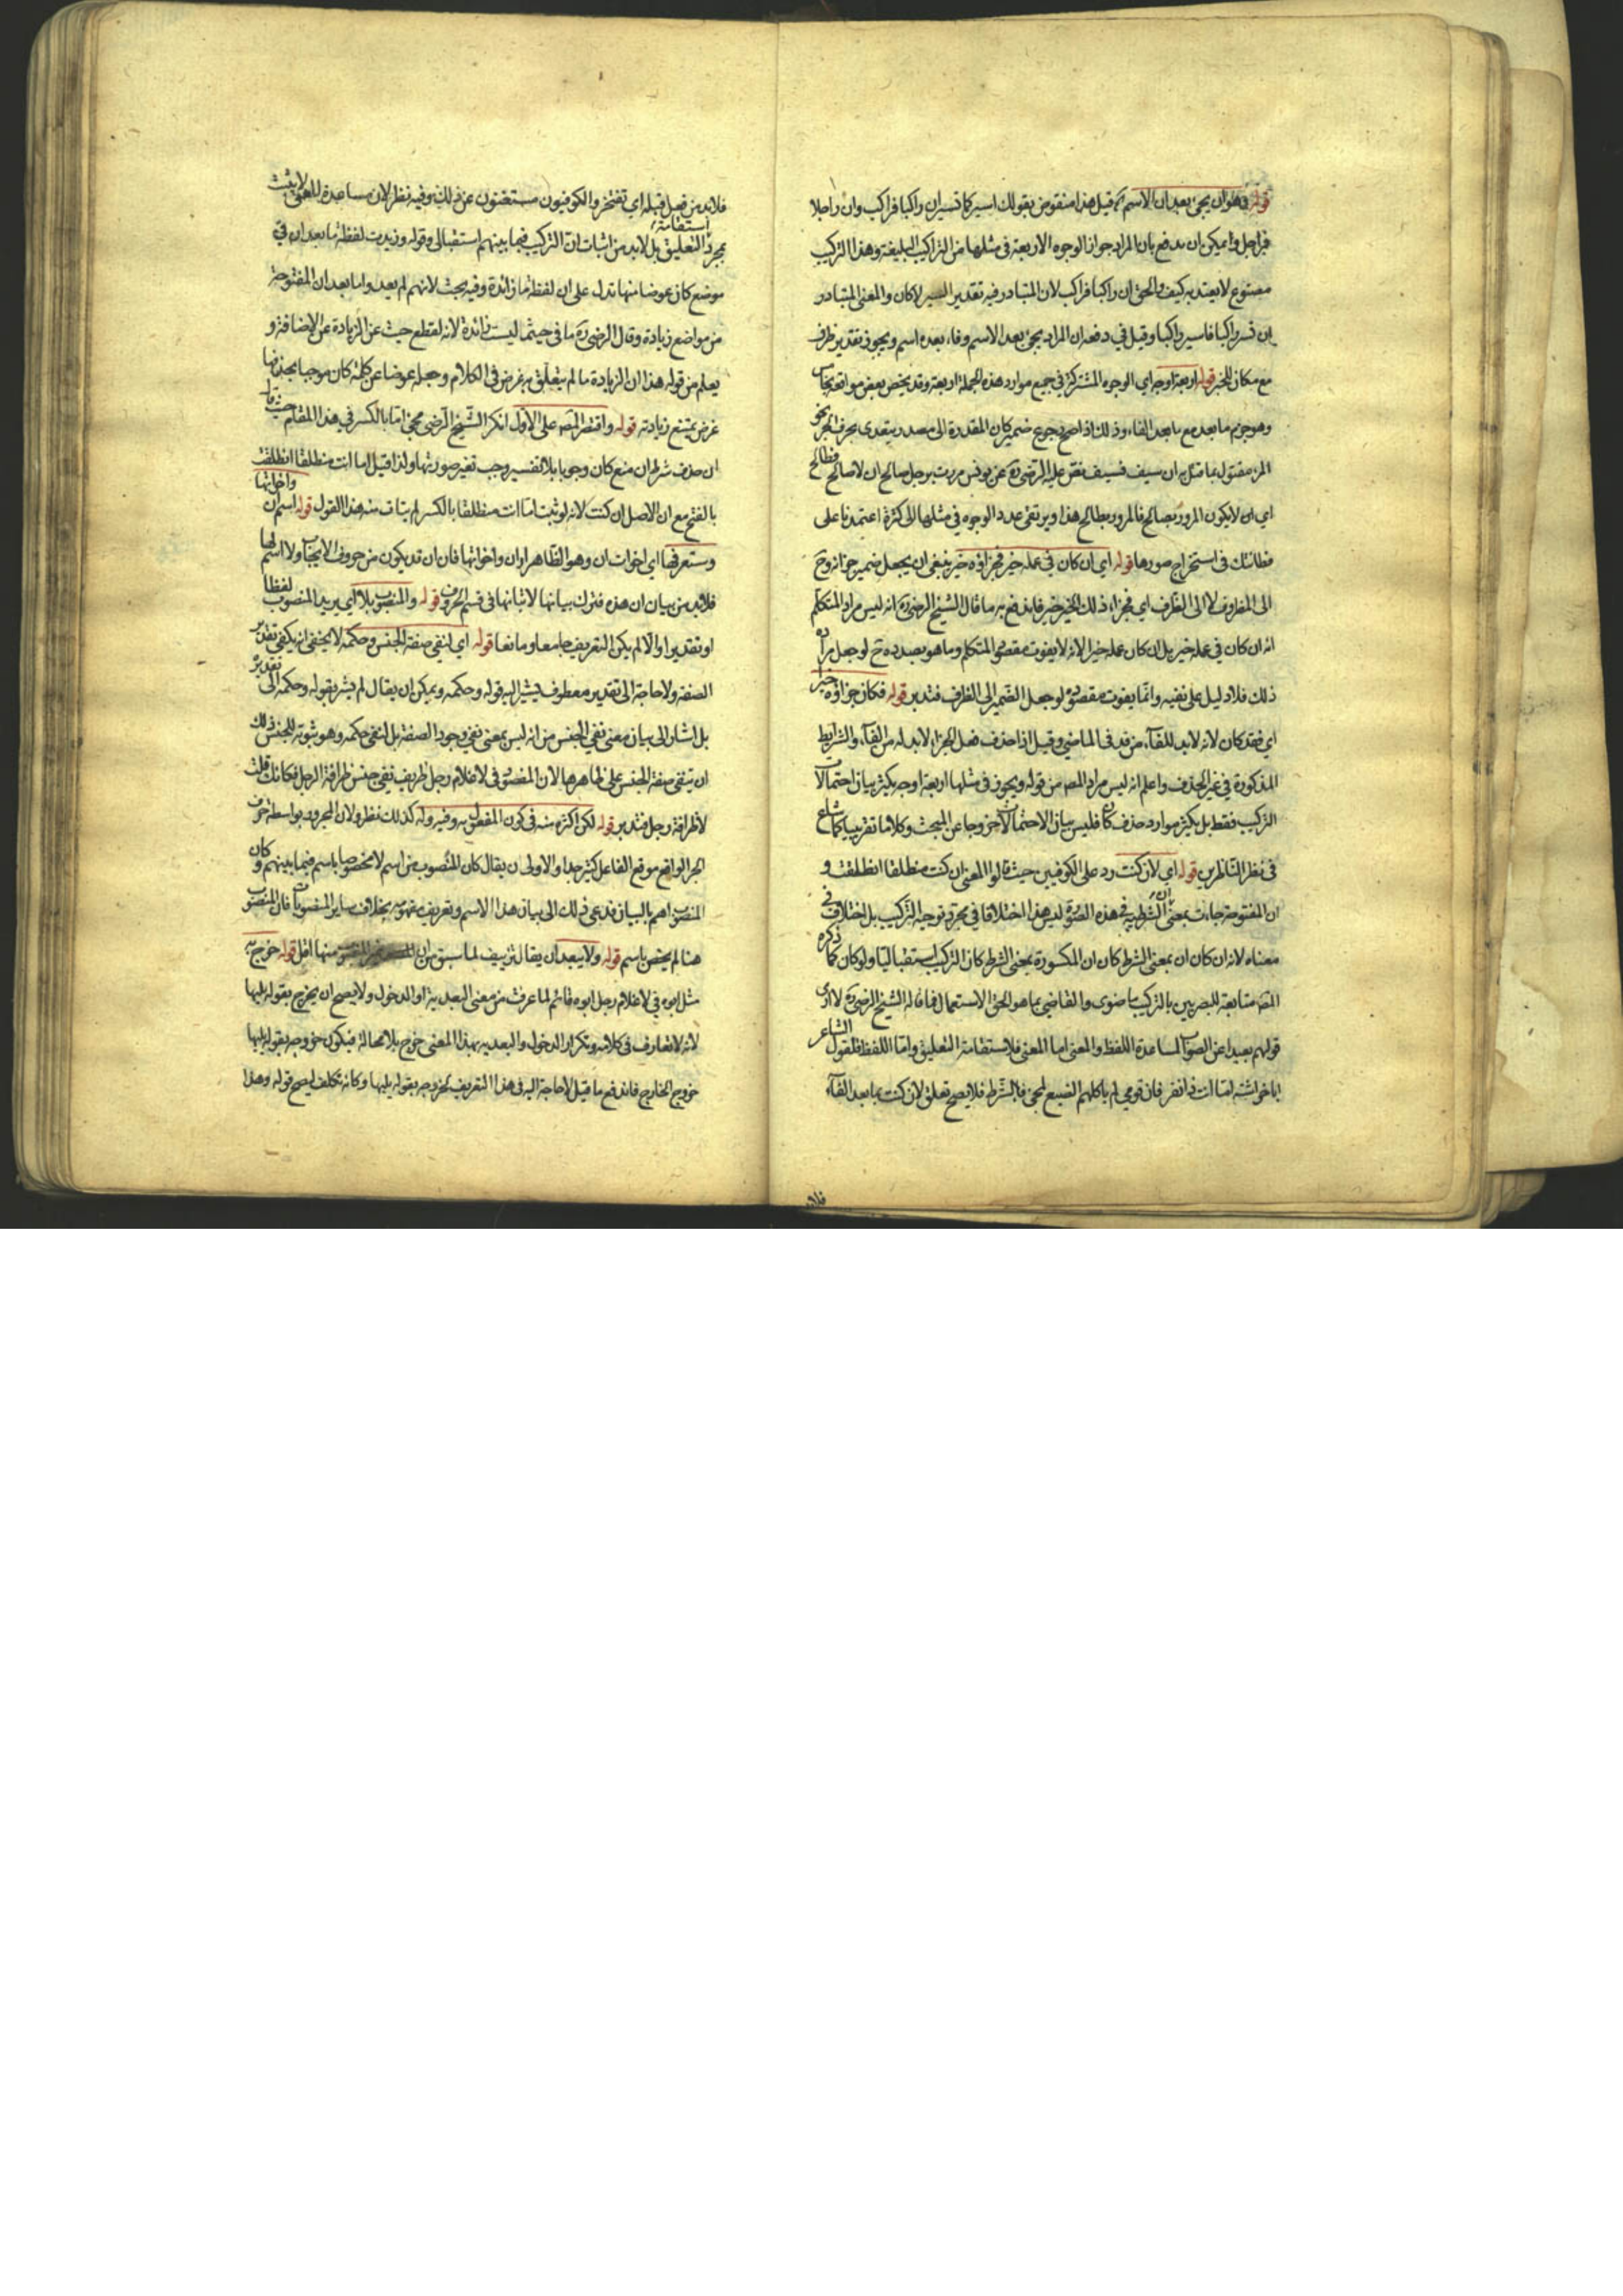 قوله هو ان يجئ بعد ان الاسم قيل هذا منقوض بقولك اسير كما تسير ان راكبا فراكب وان راجلا
فراجل ويمكن ان يدفع بان المراد جواز الوجوه الاربعة في مثلها من التراكيب البليغة وهذا التركيب
مصنوع لا يعتد به كيف والحق ان راكبا فراكب لان المتبادر فيه تقدير السير لا كان والمعنى المتبادر
ان تسر راكبا فاسير راكبا وقيل في دفعه ان المراد يجئ بعد الاسم وفاء بعده اسم ويجوز تقدير ظرف
مع مكان للخبر قوله اربعة اوجه اي الوجوه المشتركة في جميع موارد هذه الجملة اربعة وقد يختص بعض مواقعه
وهو جزم ما بعد مع ما بعد الفاء وذلك اذا صح رجوع ضمير كان المقدرة الى مصدر يتعدى بحرف الجر نحو
المرء مقتول بما قتل به ان سيف فسيف نقل عليه الرضي ره عن يونس مررت برجل صالح ان لا صالح فطالح
اي ان لا يكون المرور بصالح فالمرور بطالح هذا ويرتقي عدد الوجوه في مثلها الى كثرة اعتمدنا على
فطانتك في استخراج صورها قوله اي ان كان في عمله خير فجزاؤه خير ينبغي ان يجعل ضمير جزائه وح
الى المظروف لا الى الظرف اي فجزاء ذلك الخير خير فاندفع به ما قال الشيخ الرضي ره انه ليس مراد المتكلم
انه ان كان في عمله خير بل ان كان عمله خيرا لانه لا يفوت مقصود المتكلم وما هو بصدده ح لو جعل مراده
ذلك فلا دليل على نفيه وانما يفوت مقصوده لو جعل الضمير الى الظرف فتدبر قوله فكان جزاؤه خير
اي فقد كان لانه لا بد للفاء من قد في الماضي وقيل اذا حذف فعل الجزاء لا بد له من الفاء والشرائط
المذكورة في غير الحذف واعلم انه ليس مراد المص من قوله ويجوز في مثلها اربعة اوجه تكثير بيان احتمالات
التركيب فقط بل تكثير موارد حذف كان فليس بيان الاحتمالات خروجا عن المبحث وكلاما تقريبيا كما شاع
في نظر الناظرين قوله اي لان كنت رد على الكوفيين حيث قالوا المعنى ان كنت منطلقا انطلقت و
ان المفتوحة جاءت بمعنى ان الشرطية في هذه الصورة ليس هذا اختلافا في مجرد توجيه التركيب بل اختلاف في
معناه لانه ان كان ان بمعنى الشرط كان ان المكسورة بمعنى الشرط كان التركيب استقباليا ولو كان كما ذكره
المص متابعة للبصريين بالتركيب ماضوي والقاضي بما هو الحق الاستعمال فما قاله الشيخ الرضي ره لا ارى
قولهم بعيدا عن الصواب لمساعدة اللفظ والمعنى اما المعنى فلاستقامة التعليق واما اللفظ فلقول الشاعر
ابا خراشة اما انت ذا نفر فان قومي لم ياكلهم الضبع لمجئ فاء الشرط فلا يصح تعلق لان كنت بما بعد الفاء
فلابد
فلا بد من فعل قبله اي تفتخر والكوفيون مستغنون عن ذلك وفيه نظر لان مساعدة المعنى لا يثبت
بمجرد استقامة التعليق بل لا بد من اثبات ان التركيب فيما بينهم استقبالي وقوله وزيدت لفظة ما بعد ان في
موضع كان عوضا منها تدل على ان لفظة ما زائدة وفيه بحث لانهم لم يعدوا ما بعد ان المفتوحة
من مواضع زيادة وقال الرضي ره ما في حيثما ليست زائدة لانه لقطع حيث عن الزيادة عن الاضافة و
يعلم من قوله هذا ان الزيادة ما لم يتعلق به غرض في الكلام وجعله عوضا عن كلمة كان موجبا بحذفها
غرض يمتنع زيادته قوله واقتصر المص على الاول انكر الشيخ الرضي مجئ اما بالكسر في هذا المقام حيث قال
ان حذف شرط ان منع كان وجوبا بلا تفسير وجب تغير صورتها ولذا قيل اما انت منطلقا انطلقت
بالفتح مع ان الاصل ان كنت لانه لو ثبت اما انت منطلقا بالكسر لم يتات منه هذا القول قوله اسم ان واخواتها
وستعرفها اي اخوات ان وهو الظاهر او ان واخواتها فان ان قد يكون من حروف الايجاب ولا اسم لها
فلا بد من بيان ان هذه فترك بيانها لاتيانها في قسم الحروف قوله والمنصوب بلا اي يريد المنصوب لفظا
او تقديرا والا لم يكن التعريف جامعا ومانعا قوله اي لنفي صفة الجنس وحكمه لا يخفى انه يكفي تقدير
الصفة ولا حاجة الى تقدير معطوف يشير اليه قوله وحكمه ويمكن ان يقال لم يشر بقوله وحكمه الى تقديره
بل اشار الى بيان معنى نفي الجنس من انه ليس بمعنى نفي وجود الصفة بل انتفى حكمه وهو ثبوته للجنس ذلك
ان تبقى صفة الجنس على ظاهرها لان المقصود في لا غلام رجل ظريف نفي جنس ظرافة الرجل فكانك قلت
لا ظرافة رجل فتدبر قوله لكن اكثره منه في كون المفعول به وفيه وله كذلك نظر ولان المجرور بواسطة حرف
الجر الواقع موقع الفاعل كثير جدا والاولى ان يقال كان المنصوب من اسم لا مخصوصا باسم فيما بينهم وكان
المنصوب اهم بالبيان فدعى ذلك الى بيان هذا الاسم وتعريف مفهومه بخلاف ساير المنصوبات فان المنصوب
هنا لم يختص باسم قوله ولا يبعد ان يقال تزييف لما سبق من ان منها اقل قوله خرج به
مثل ابوه في لا غلام رجل ابوه قائم لما عرفت من معنى البعدية او الدخول ولا يصح ان يخرج بقوله يليها
لانه لا تعارف في كلامه وتكرار الدخول والبعدية بهذا المعنى خرج بلا محالة فيكون خروجه بقوله يليها
خروج الخارج فاندفع ما قيل لا حاجة اليه في هذا التعريف لخروجه بقوله يليها وكانه تكلف ليصح قوله وهذا